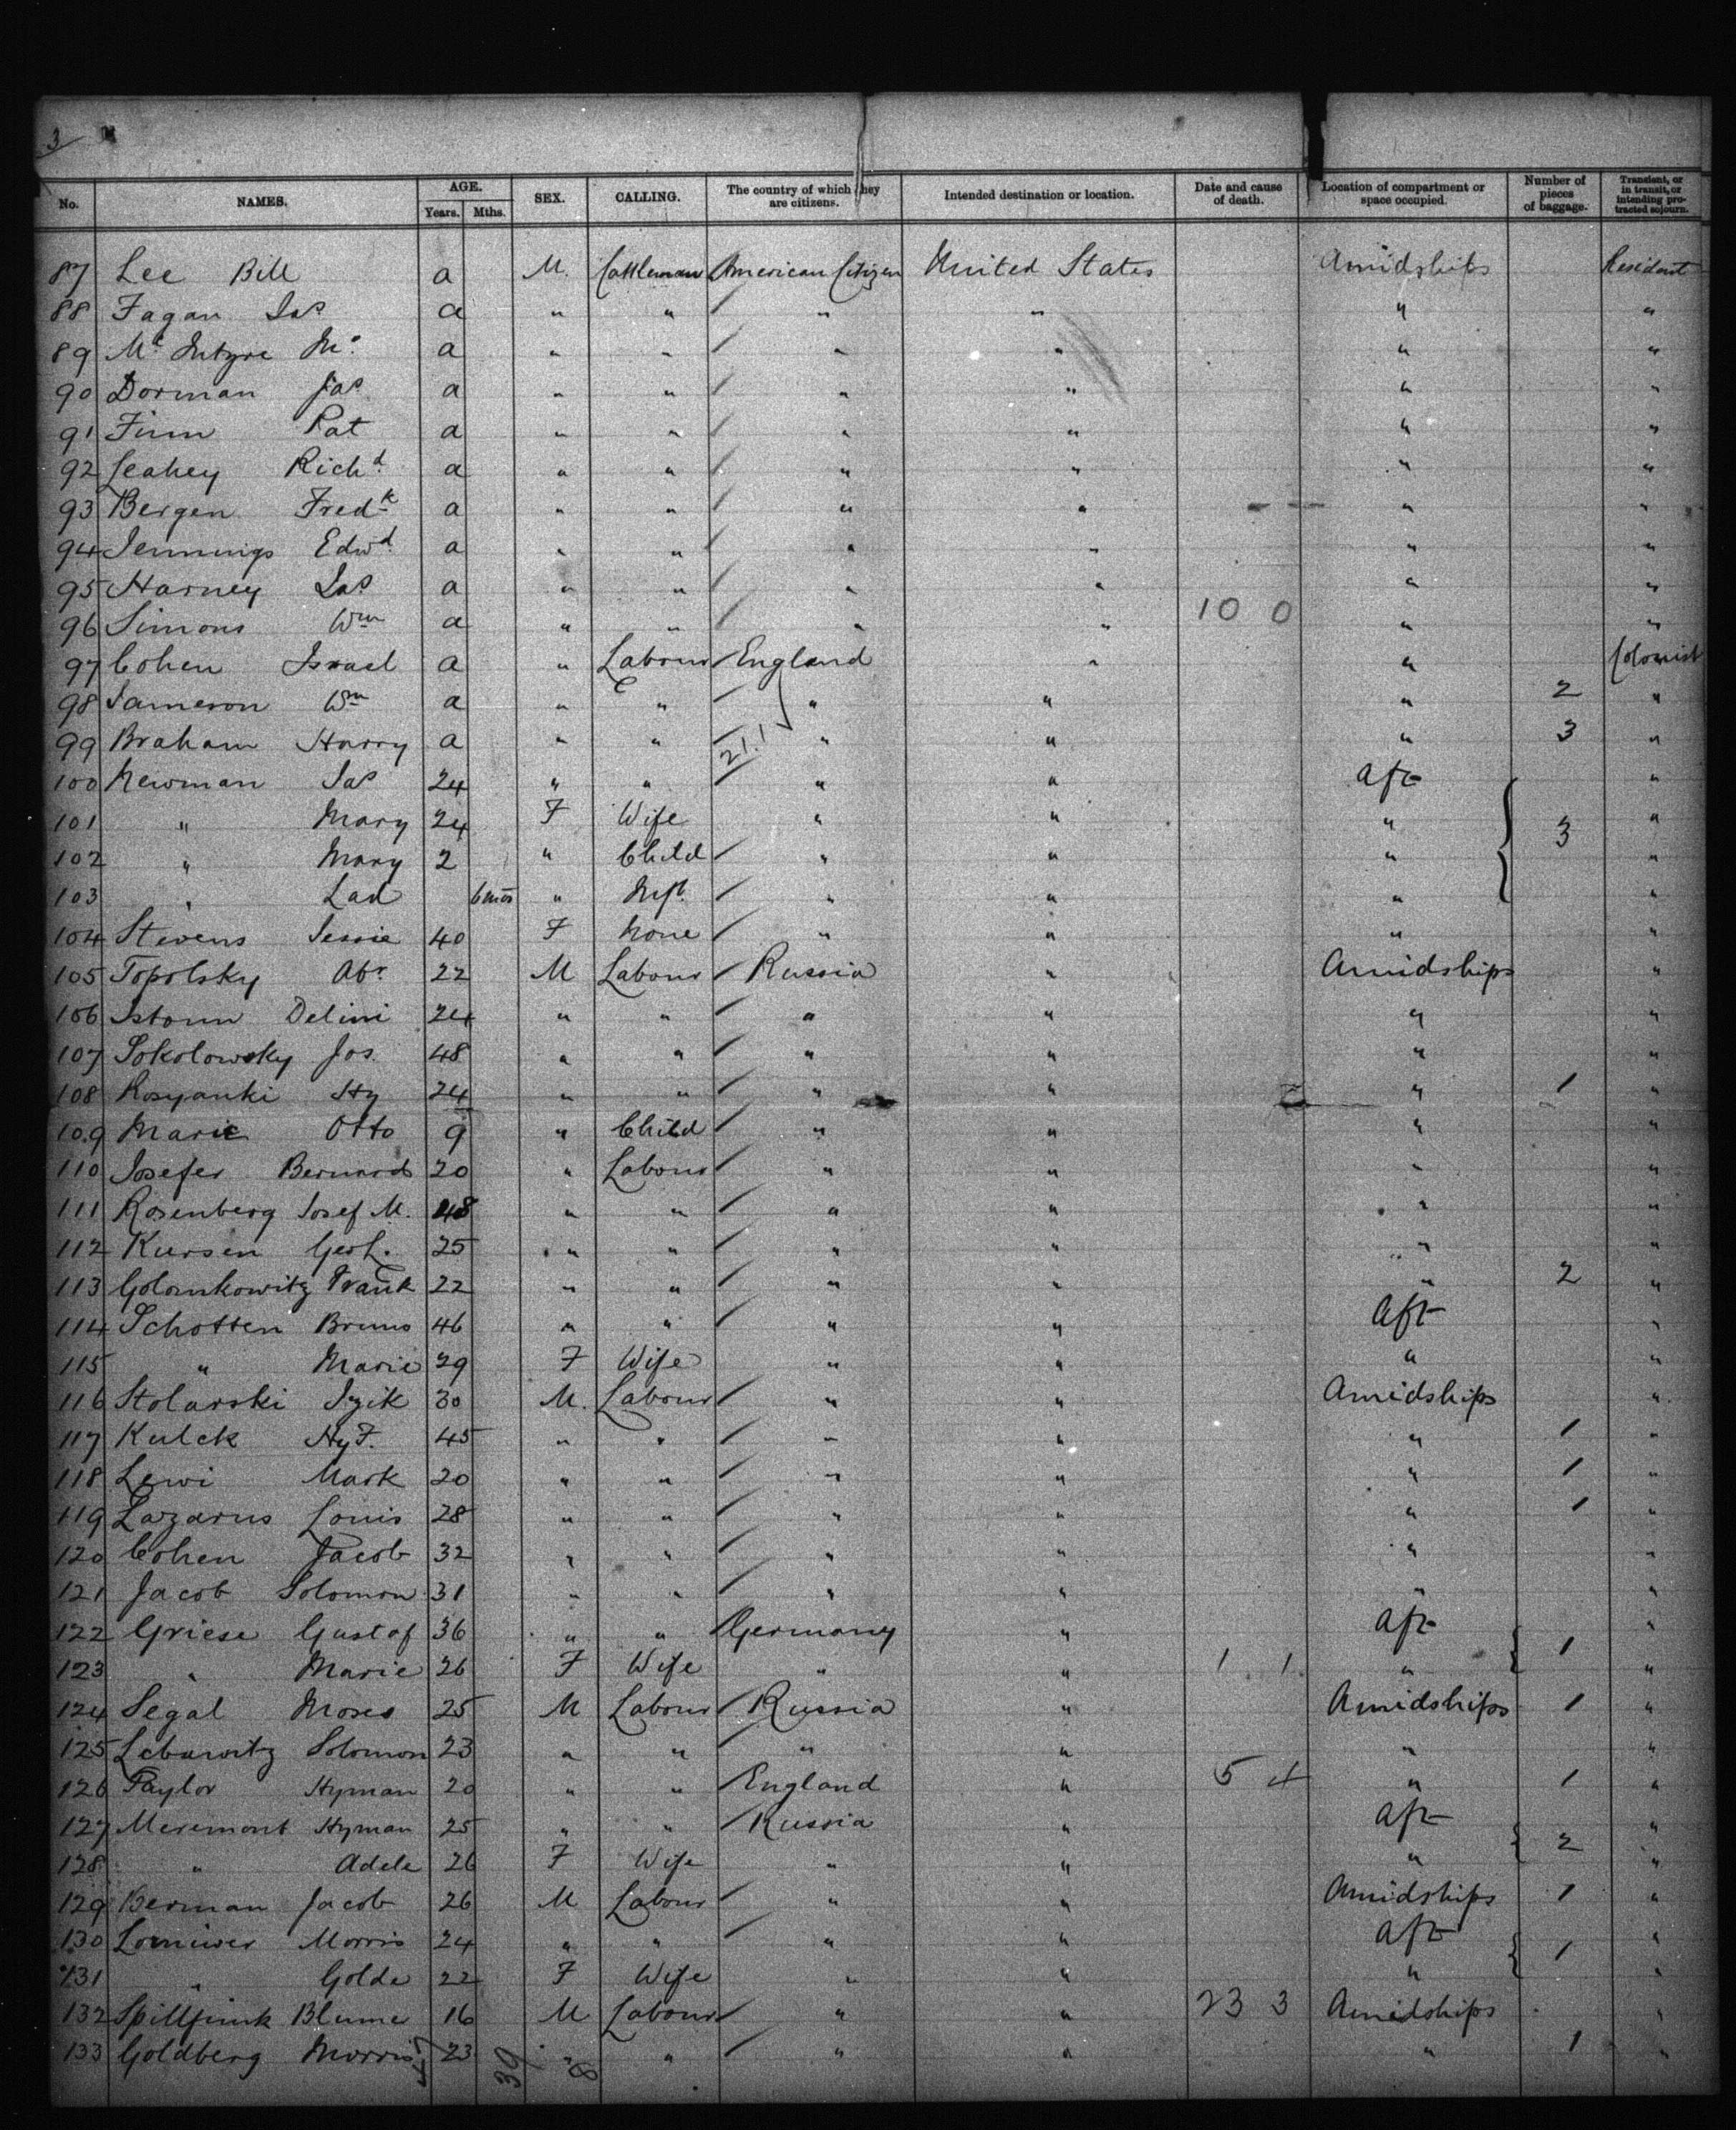 3
No. NAMES. AGE. Years. Mths. SEX. CALLING. The country of which they are citizens. Intended destination or location. Date and cause of death. Location of compartment or space occupied. Number of pieces of baggage. Transient, or in transit, or intending protracted sojourn.
87 Lee Bill a M. Cattleman American Citizen United States Amidships Resident
88 Fagan Jas a " " " " " "
89 Mc Intyre a " " " " " "
90 Dorman Jas a " " " " " "
91 Finn Pat a " " " " " "
92 Leahey Richd a " " " " " "
93 Bergen Fredk a " " " " " "
94 Jennings Edwd a " " " " " "
95 Harney Jas a " " " " " "
96 Simons Wm a " " " " 10 0 " "
97 Cohen Israel a " Labour England " " Colonist
98 Jameson Wm a " " " " " 2 "
99 Braham Harry a " " 21.1 " " " 3 "
100 Newman Jas 24 " " " " Aft "
101 " Mary 24 F Wife " " " 3 "
102 " Mary 2 " Child " " " "
103 " 6mos " Inft. " " " "
104 Stevens Jessie 40 F None " " " "
105 Topolsky Abr 22 M Labour Russia " Amidships "
106 Istorm Delini 24 " " " " " "
107 Sokolowsky Jos. 48 " " " " " "
108 Rosyanki Hy 24 " " " " " 1 "
109 Marie Otto 9 " Child " " " "
110 Josefer Bernard 20 " Labour " " " "
111 Rosenberg Josef M. 48 " " " " " "
112 Kursen 25 " " " " " "
113 Golomkowitz Frank 22 " " " " " 2 "
114 Schotten Bruno 46 " " " " Aft "
115 " Marie 29 F Wife " " " "
116 Stolarski Izik 30 M. Labour " " Amidships "
117 Kulck Hy F. 45 " " " " " 1 "
118 Lewi Mark 20 " " " " " 1 "
119 Lazarus Louis 28 " " " " " 1 "
120 Cohen Jacob 32 " " " " " "
121 Jacob Solomon 31 " " " " " "
122 Griese Gustof 36 " " Germany " Aft "
123 " Marie 26 F Wife " " 1 1 " 1 "
124 Segal Moses 25 M Labour Russia " Amidships 1 "
125 Lebowitz Solomon 23 " " " " " "
126 Taylor Hyman 20 " " England " 5 4 " 1 "
127 Meremont Hyman 25 " " Russia " Aft "
128 " Adele 26 F Wife " " " 2 "
129 Berman Jacob 26 M Labour " " Amidships 1 "
130 Lorniwer Morris 24 " " " " Aft "
131 " Golde 22 F Wife " " " 1 "
132 Spillfink Blume 16 M Labour " " 23 3 Amidships "
133 Goldberg Morris 23 " " " " " 1 "
39 8